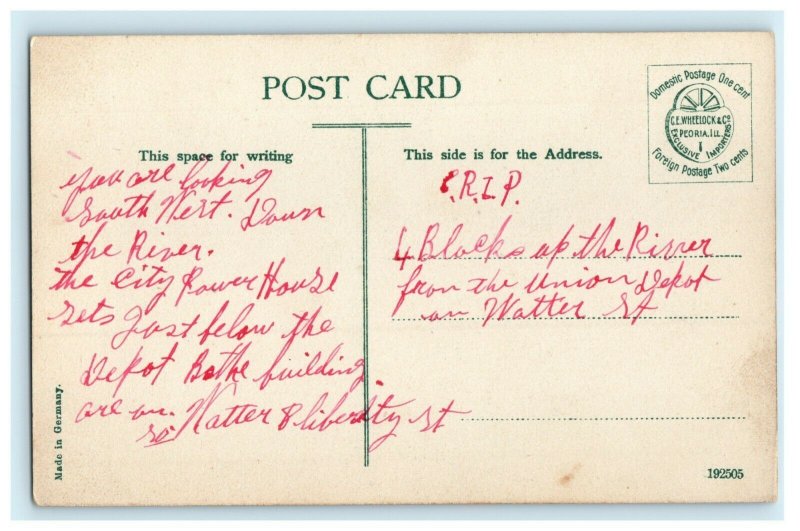 POST CARD
Domestic Postage One cent
C.E. WHEELOCK & CO
PEORIA, ILL.
EXCLUSIVE IMPORTERS
Foreign Postage Two cents
This space for writing
you are looking
South West. Down
the River.
the City Power House
sets Just below the
Depot Bothe building
are on.
so Watter & liberty St
This side is for the Address.
C.R.I.P.
4 Blocks up the River
from the Union Depot
on Watter St
Made in Germany.
192505